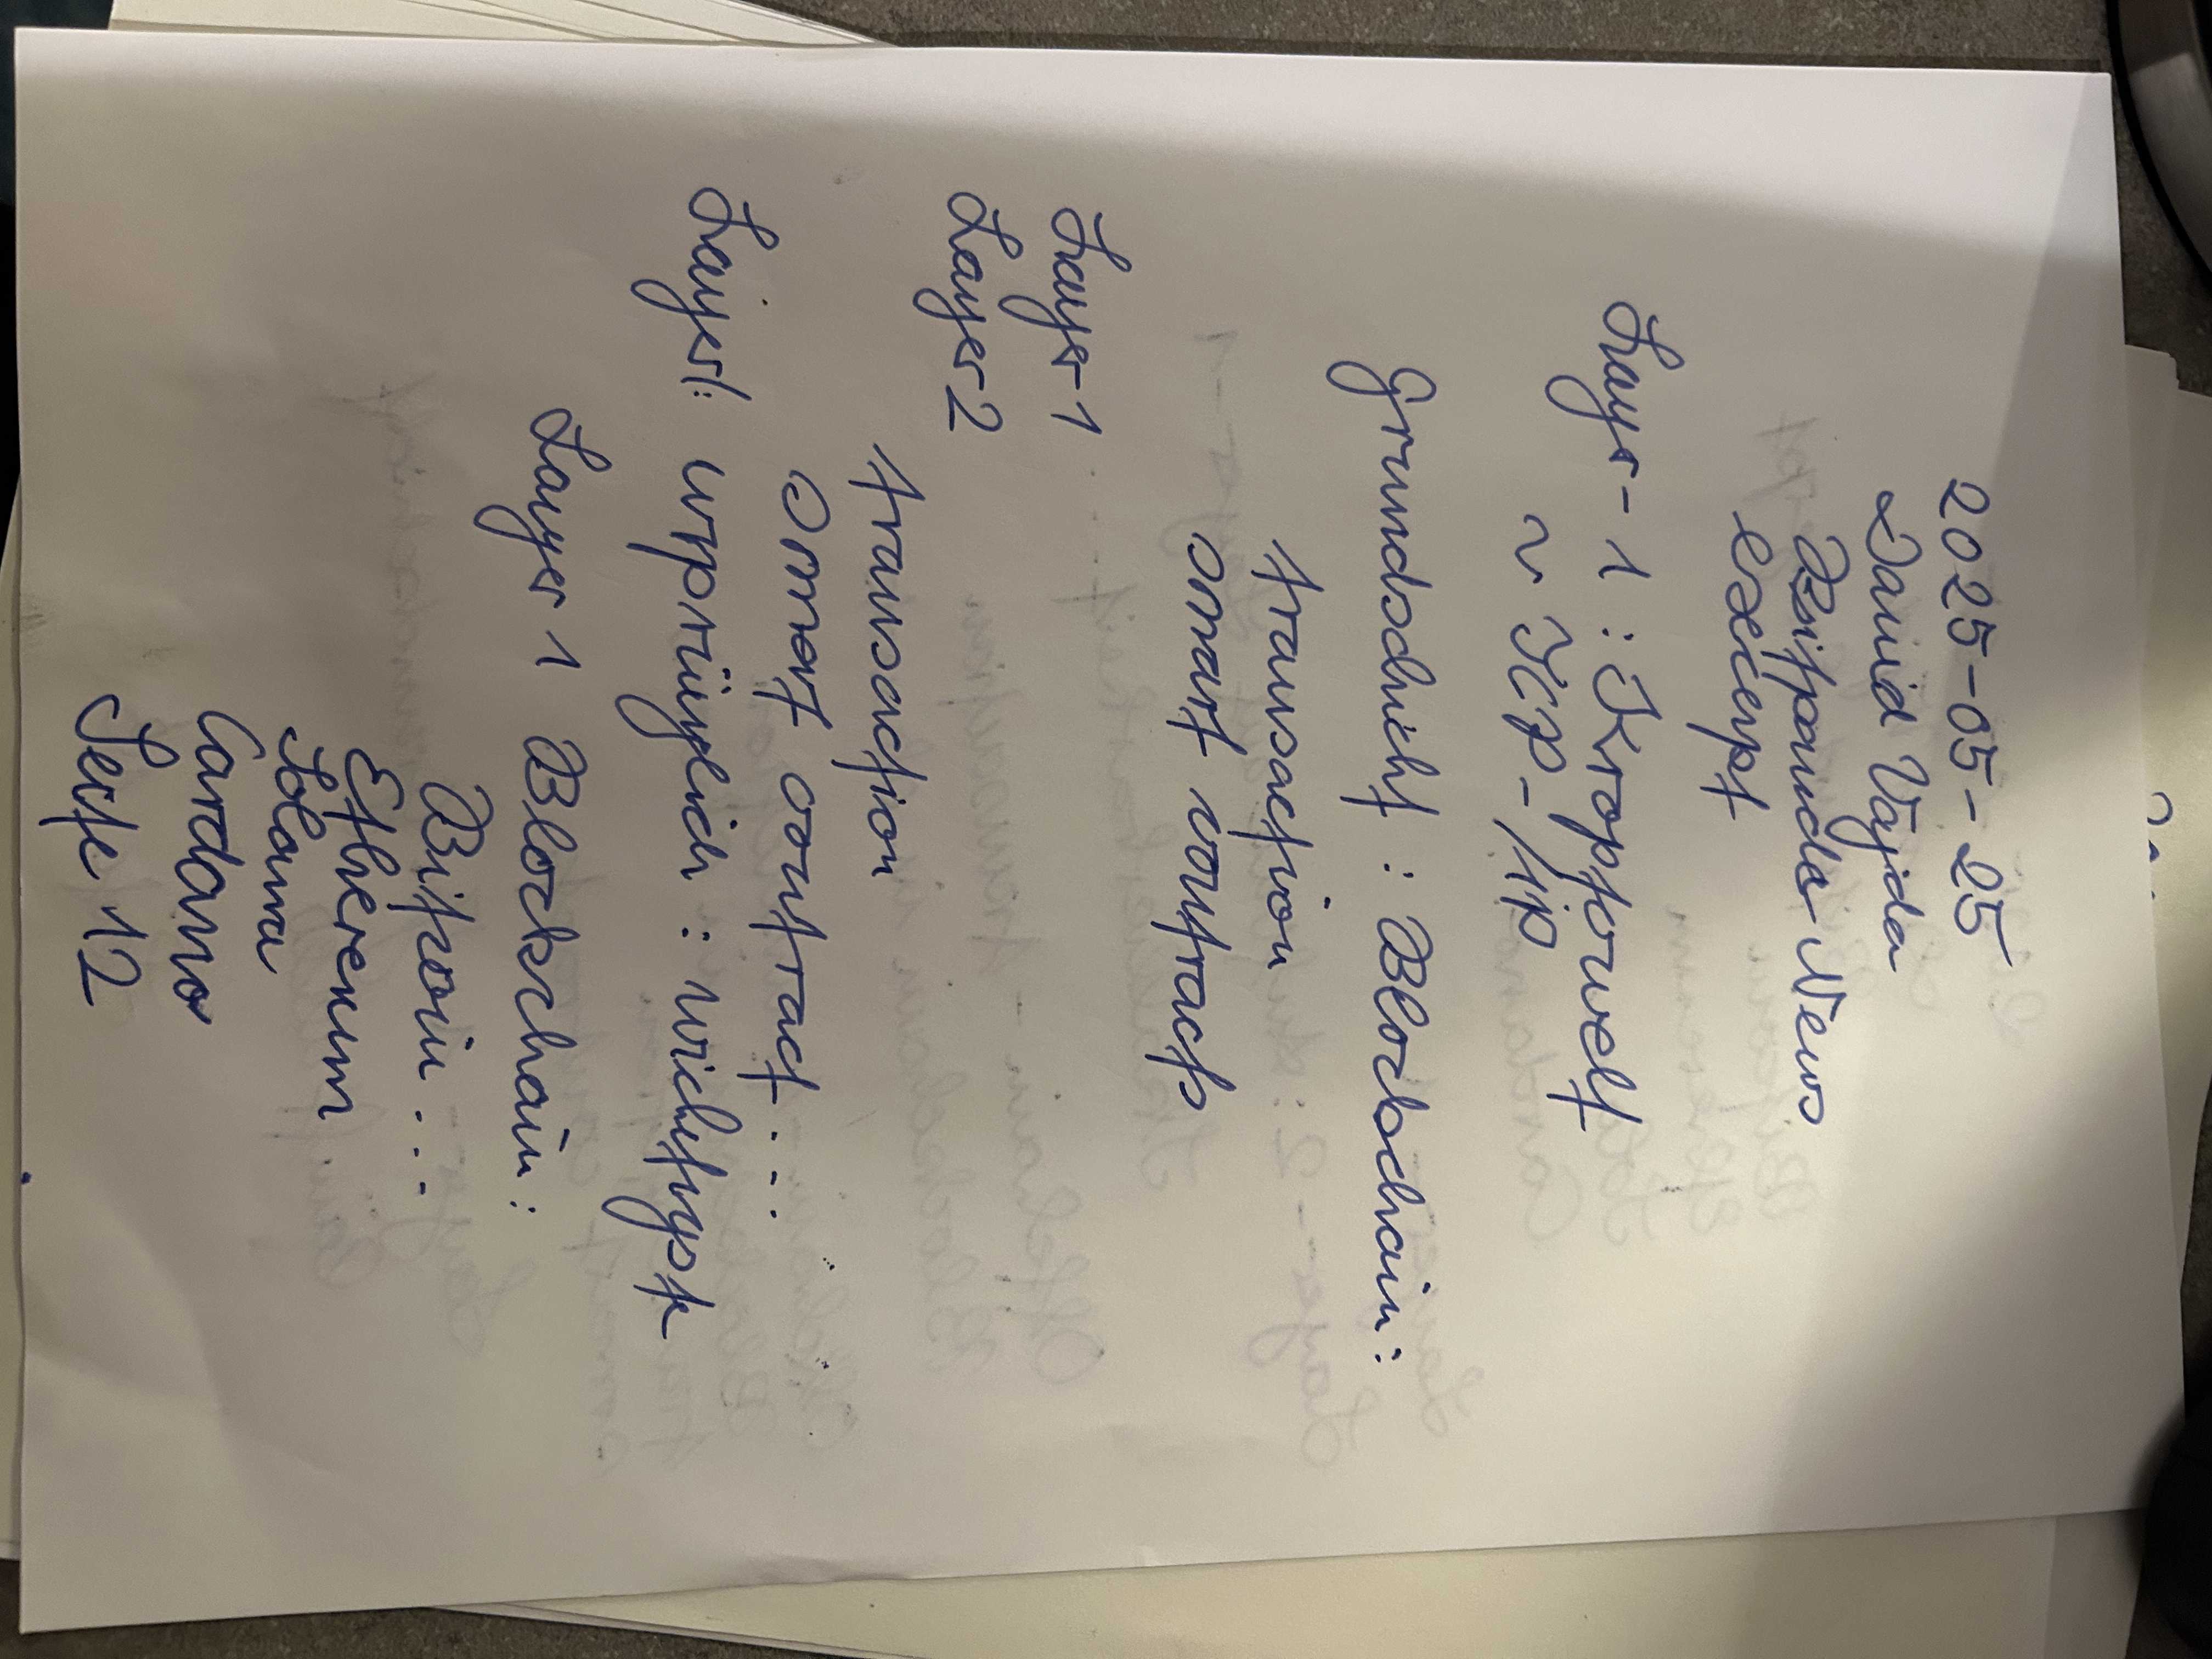 2025-05-25
David Vajda
Bitpanda News
Exzerpt
Layer-1: Kryptowelt
~ TCP-/IP
Grundschicht: Blockchain:
transaction
smart contracts
Layer 1
Layer 2
transaction
smart contract...
Layer1: ursprünglich: wichtigste
Layer 1 Blockchain:
Bitcoin...
Ethereum
Solana
Cardano
Seite 12